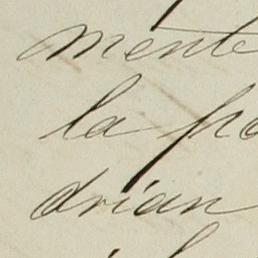 mente
la po
drian